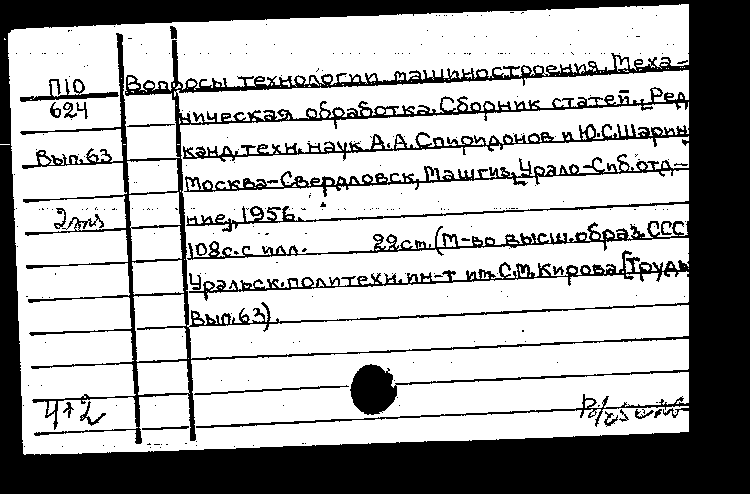 П10 Вопросы технологии машиностроения. Меха-
624 ническая обработка. Сборник статей. [Ред.
Вып. 63 канд. техн. наук А.А. Спиридонов и Ю.С. Шарин
Москва-Свердловск, Машгиз, [Урало-Сиб. отд-
2 экз ние], 1956.
108 с. с илл. 22 см. (М-во высш. образ. СССР
Уральск. политехн. ин-т им. С.М. Кирова. [Труды
Вып. 63).
4+2